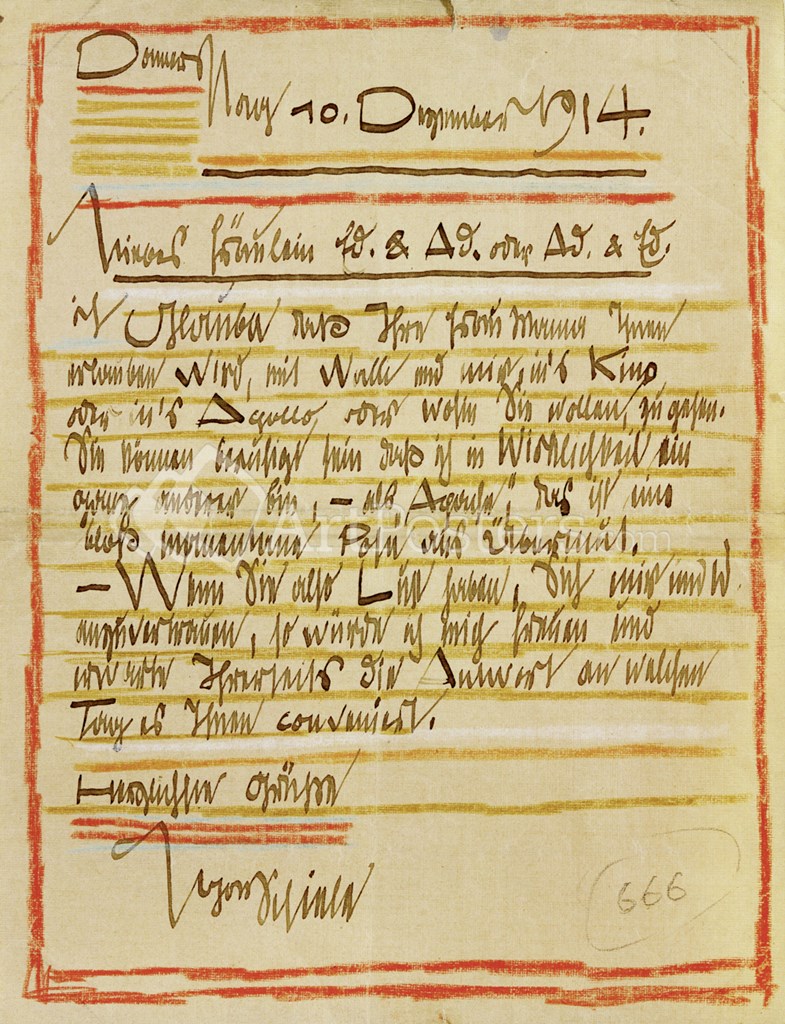 Donnerstag 10. Dezember 1914.
Liebes Fräulein Ed. & Ad. oder Ad. & Ed.
ich Glaube daß Ihre Frau Mama Ihnen
erlauben Wird, mit Walli und mir, in's Kino
oder in's Apollo, oder wohin Sie wollen, zu gehen.
Sie können beruhigt sein daß ich in Wirklichkeit ein
ganz anderer bin, – als Apache", das ist eine
bloß momentane Pose aus Übermut.
– Wenn Sie also Lust haben, Sich mir und W.
anzuvertrauen, so würde ich mich freuen und
erwarte Ihrerseits die Antwort an welchen
Tag es Ihnen conveniert.
Herzlichste Grüße
Egon Schiele
666